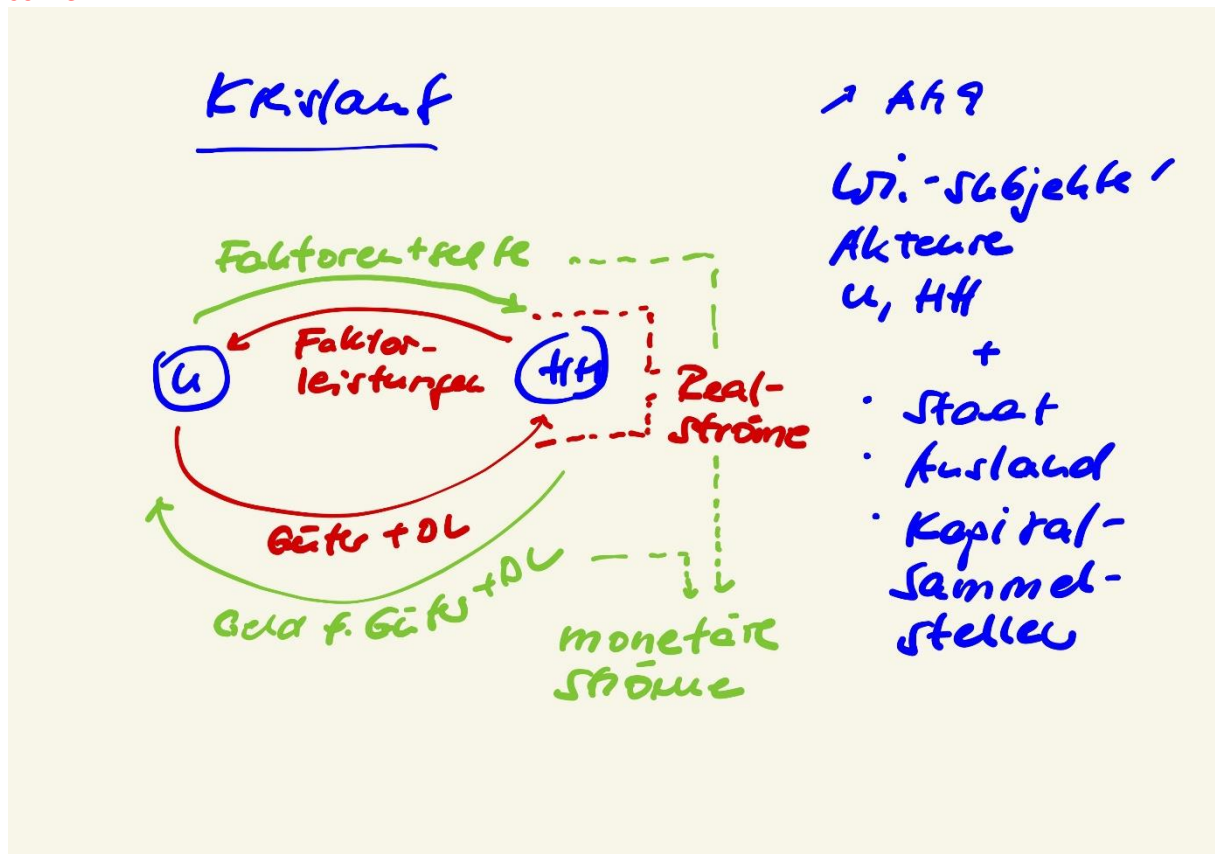 Kreislauf
Faktorentgelte
Faktor-
leistungen
U
HH
Real-
ströme
Güter + DL
Geld f. Güter + DL
monetäre
Ströme
Wi.-subjekte
Akteure
U, HH
+
· Staat
· Ausland
· Kapital-
sammel-
stellen